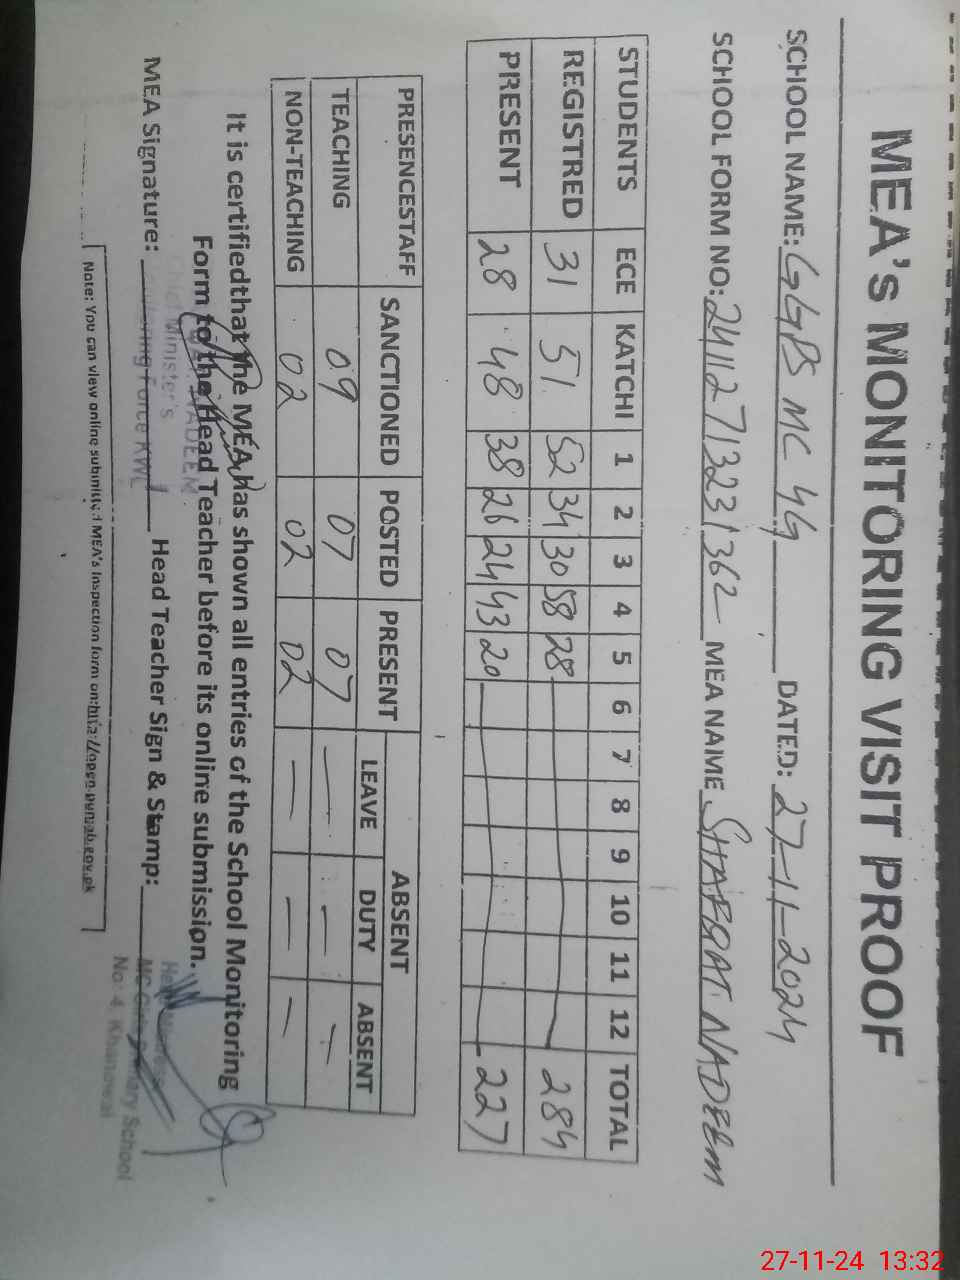 MEA's MONITORING VISIT PROOF
SCHOOL NAME: GGPS MC 4G DATED: 27-11-2024
SCHOOL FORM NO: 24112713231362 MEA NAME SHAFQAT NADEEM
STUDENTS ECE KATCHI 1 2 3 4 5 6 7 8 9 10 11 12 TOTAL
REGISTRED 31 51 52 34 30 58 28 284
PRESENT 28 48 38 26 24 43 20 227
PRESENCESTAFF SANCTIONED POSTED PRESENT ABSENT
LEAVE DUTY ABSENT
TEACHING 09 07 07 — — —
NON-TEACHING 02 02 02 — — —
It is certifiedthat the MEA has shown all entries of the School Monitoring
Form to the Head Teacher before its online submission.
NADEEM
Chief Minister's
Monitoring Force KWL
MEA Signature: Head Teacher Sign & Stamp:
MC Primary School
No. 4, Khanewal
Note: You can view online submitted MEA's Inspection form on:http://open.punjab.gov.pk
27-11-24 13:32